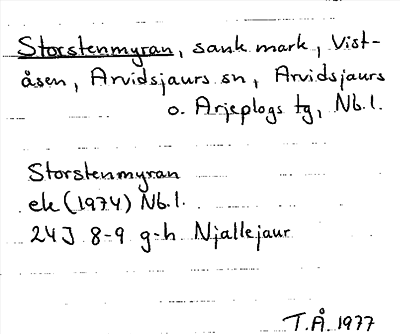 Storstenmyran, sank mark, Vist-
åsen, Arvidsjaurs sn, Arvidsjaurs
o. Arjeplogs tg, Nb.l.
Storstenmyran
ek (1974) Nb.l.
24J 8-9 g-h Njallejaur
T.Å. 1977